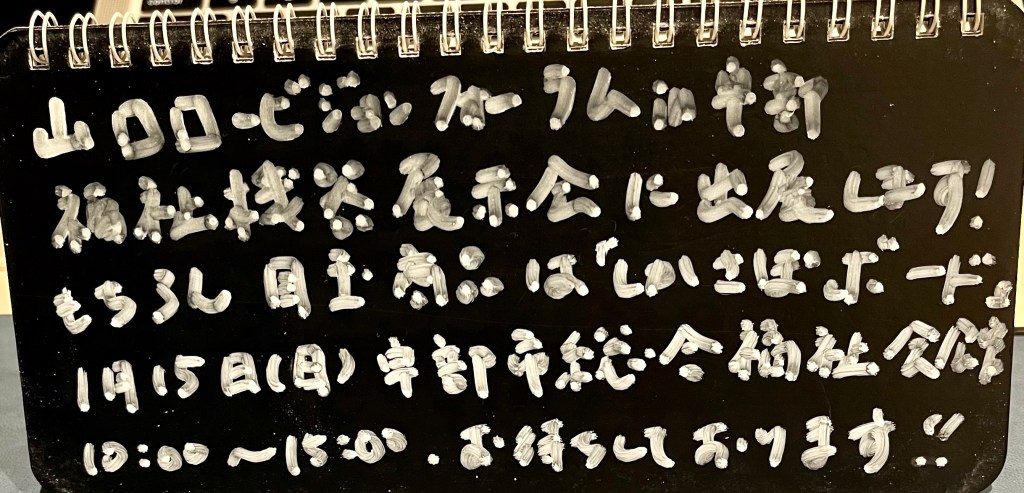 山口ロービジョンフォーラムin宇部
福祉機器展示会に出展します!
もちろん 目玉 ボード
1月15日(日)宇部市総合福祉会館
10:00〜15:00.お待ちしております!!